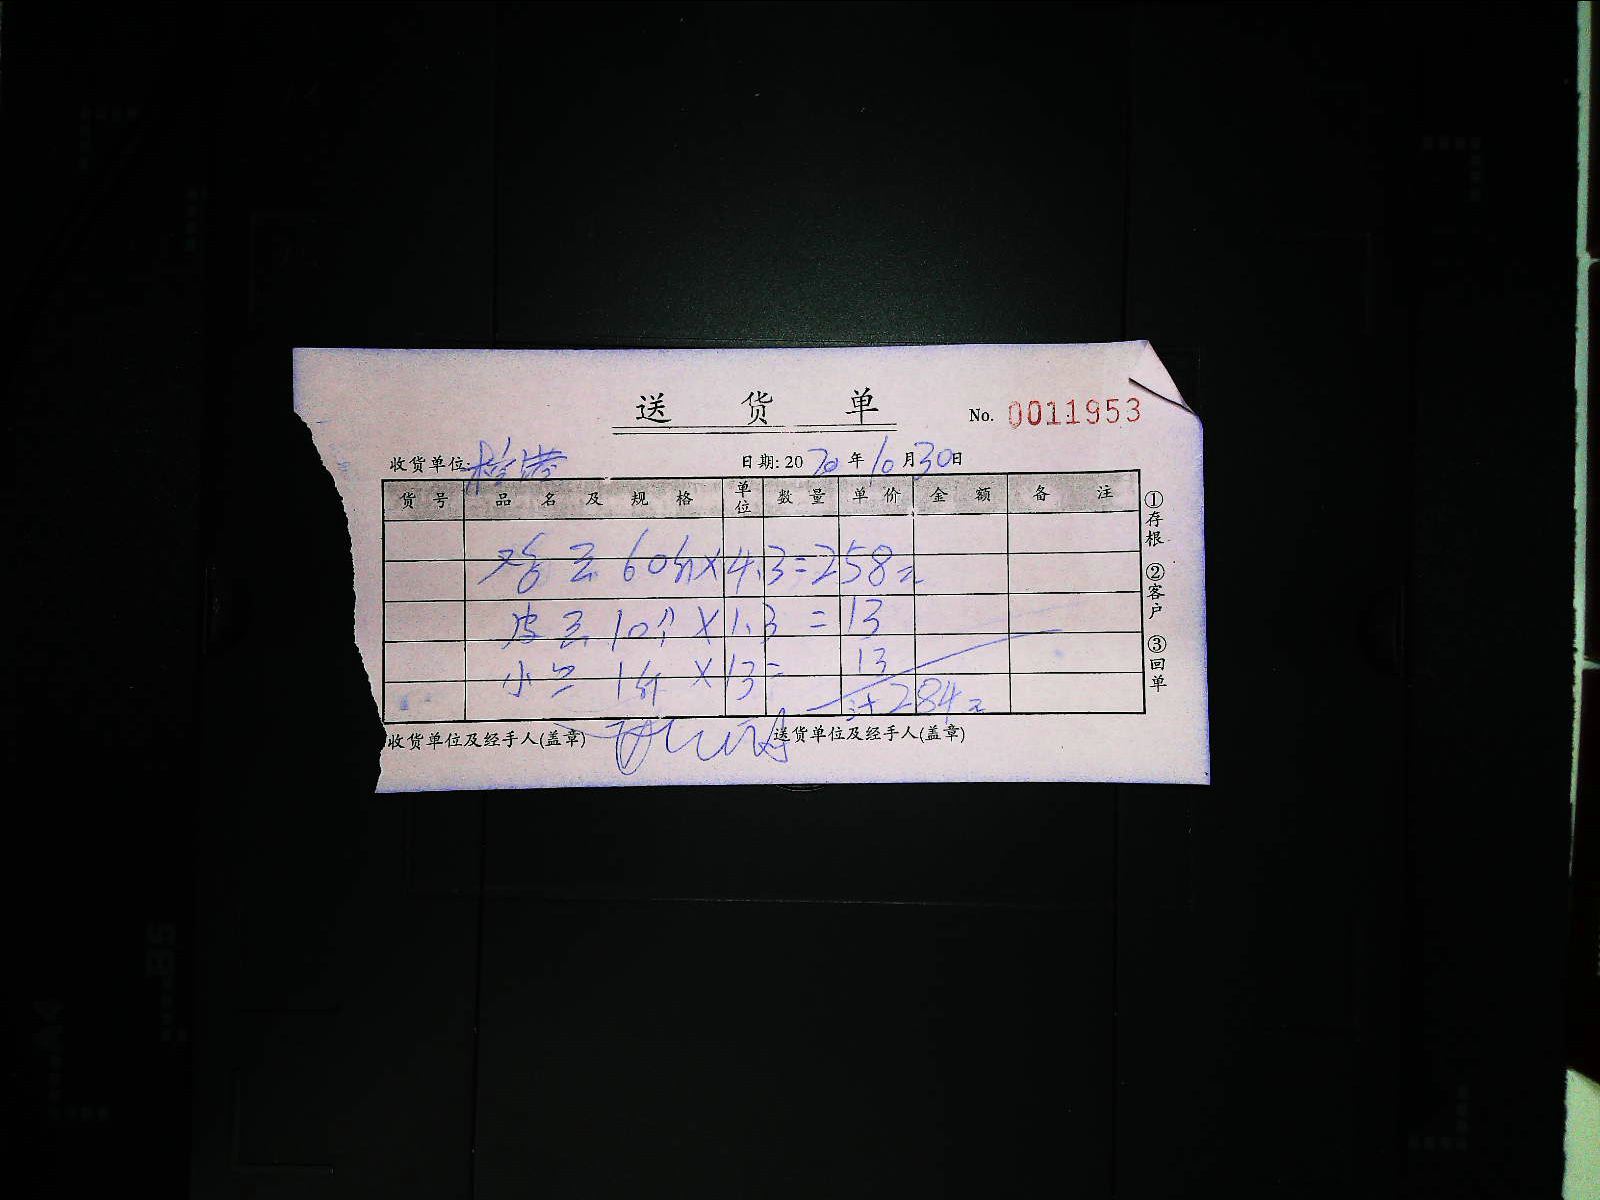 送 货 单
No. 0011953
收货单位: 日期: 2020年10月30日
货号 品名及规格 单位 数量 单价 金额 备注
鸡 60份×4.3=258元
皮 10个×1.3=13
小 1份×13=13
计284元
收货单位及经手人(盖章) 送货单位及经手人(盖章)
①存根 ②客户 ③回单